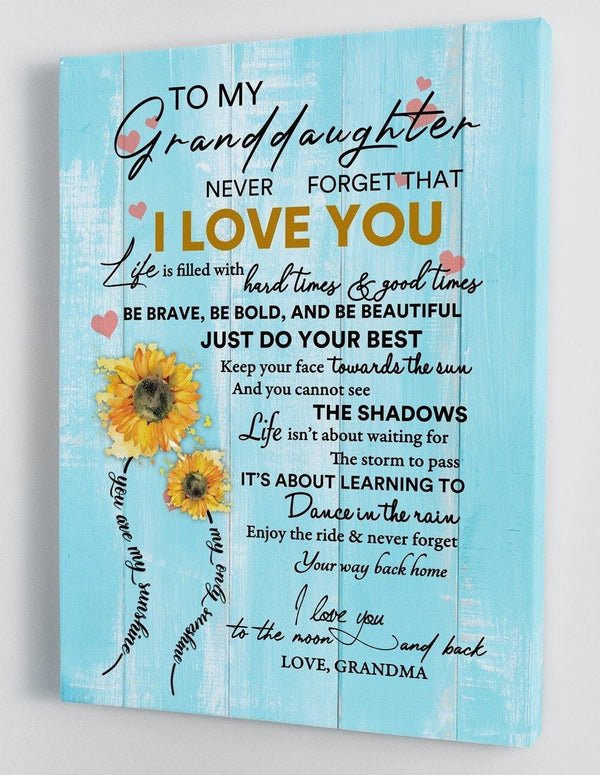 TO MY
Granddaughter
NEVER FORGET THAT
I LOVE YOU
Life is filled with hard times & good times
BE BRAVE, BE BOLD, AND BE BEAUTIFUL
JUST DO YOUR BEST
Keep your face towards the sun
And you cannot see
THE SHADOWS
Life isn't about waiting for
The storm to pass
IT'S ABOUT LEARNING TO
Dance in the rain
Enjoy the ride & never forget
Your way back home
I love you
to the moon and back
LOVE, GRANDMA
you are my sunshine
my only sunshine